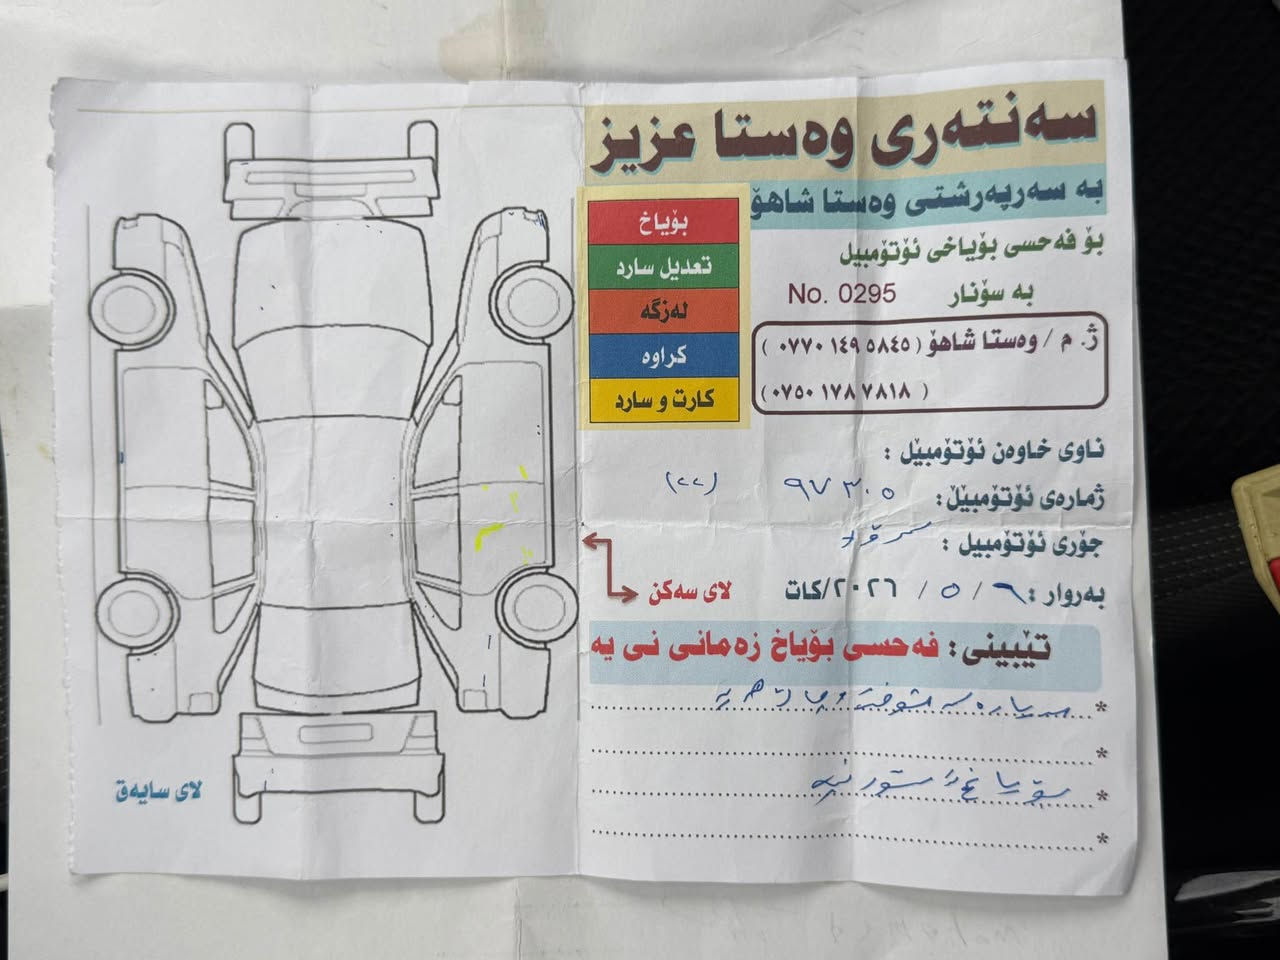 سەنتەری وەستا عزیز
بە سەرپەرشتی وەستا شاهۆ
بۆ فەحسی بۆیاخی ئۆتۆمبیل
بە سۆنار No. 0295
ژ. م / وەستا شاهۆ ( ٠٧٧٠ ١٤٩ ٥٨٤٥ )
( ٠٧٥٠ ١٧٨ ٧٨١٨ )
بۆیاخ
تعدیل سارد
لەزگە
کراوە
کارت و سارد
ناوی خاوەن ئۆتۆمبێل :
ژمارەی ئۆتۆمبێڵ: ٩٧٣٠٥ (٢٢)
جۆری ئۆتۆمبیل :
بەروار : ٩ / ٥ / ٢٠٢٦/کات
لای سەکن
تێبینی: فەحسی بۆیاخ زەمانی نی یە
*
*
*
*
لای سایەق